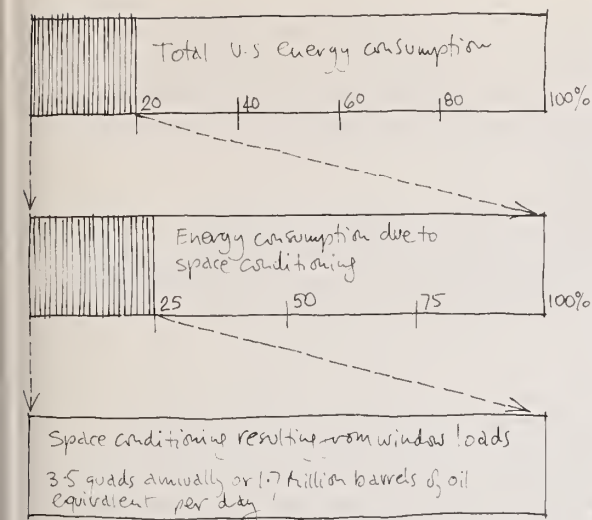 Total U.S energy consumption
20 40 60 80 100%
Energy consumption due to
space conditioning
25 50 75 100%
Space conditioning resulting from window loads
3.5 quads annually or 1.7 million barrels of oil
equivalent per day